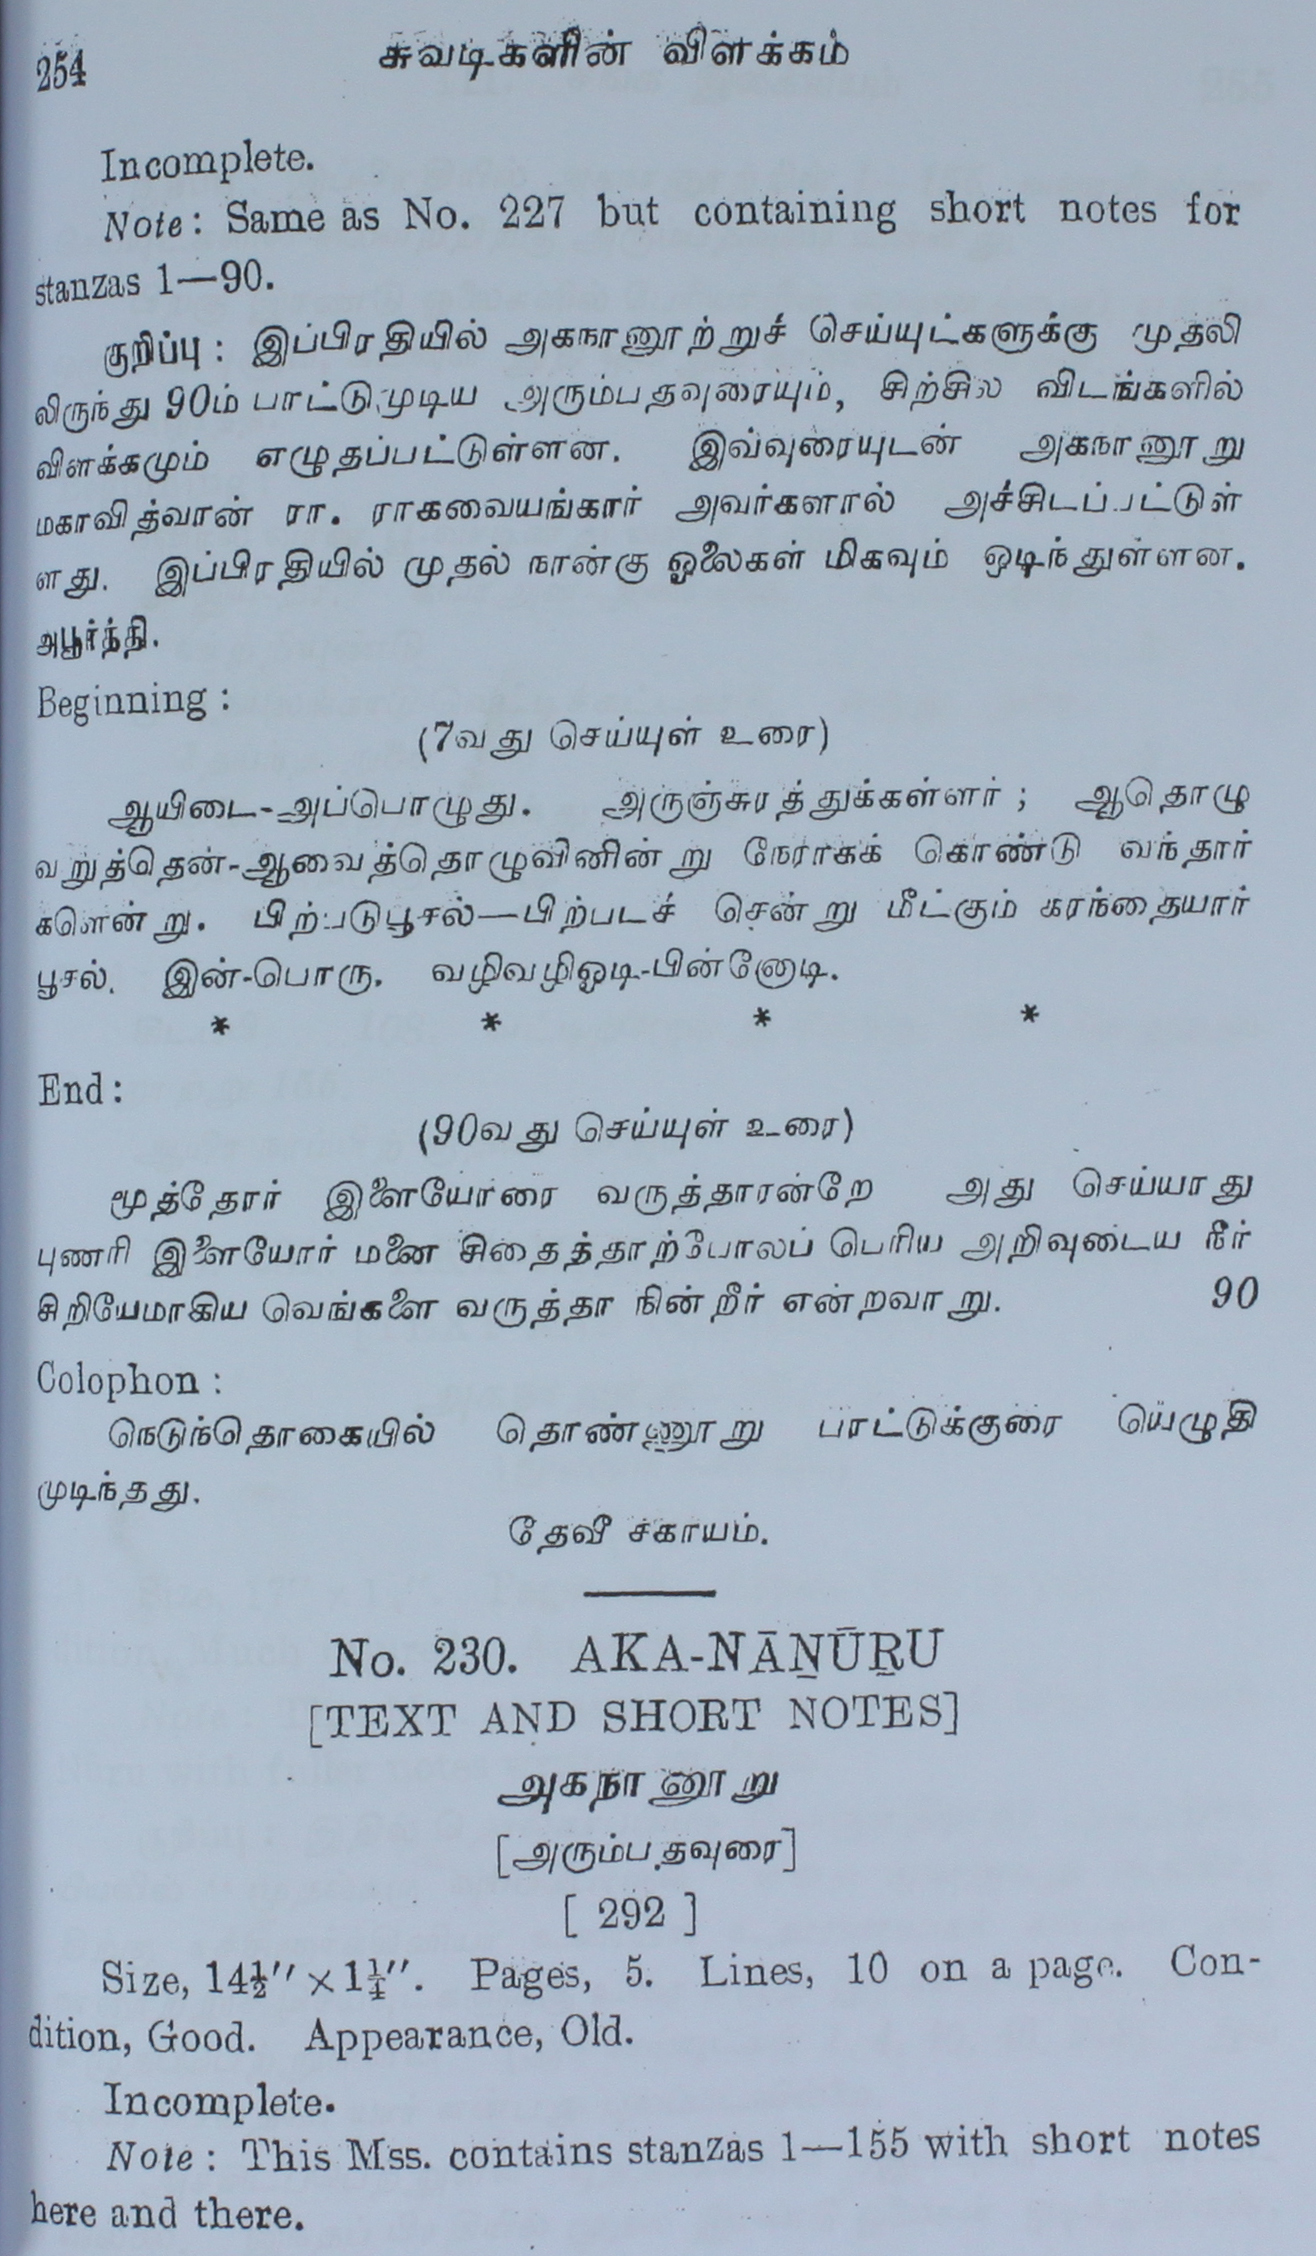 254
சுவடிகளின் விளக்கம்
Incomplete.
Note: Same as No. 227 but containing short notes for
stanzas 1—90.
குறிப்பு : இப்பிரதியில் அகநானூற்றுச் செய்யுட்களுக்கு முதலி
லிருந்து 90ம் பாட்டுமுடிய அரும்பதவுரையும், சிற்சில விடங்களில்
விளக்கமும் எழுதப்பட்டுள்ளன. இவ்வுரையுடன் அகநானூறு
மகாவித்வான் ரா. ராகவையங்கார் அவர்களால் அச்சிடப்பட்டுள்
ளது. இப்பிரதியில் முதல் நான்கு ஓலைகள் மிகவும் ஒடிந்துள்ளன.
அபூர்த்தி.
Beginning :
(7வது செய்யுள் உரை)
ஆயிடை-அப்பொழுது. அருஞ்சுரத்துக்கள்ளர் ; ஆதொழு
வறுத்தென்-ஆவைத்தொழுவினின்று நேராகக் கொண்டு வந்தார்
களென்று. பிற்படுபூசல்—பிற்படச் சென்று மீட்கும் கரந்தையார்
பூசல். இன்-பொரு. வழிவழிஓடி-பின்னோடி.
* * * *
End :
(90வது செய்யுள் உரை)
மூத்தோர் இளையோரை வருத்தாரன்றே அது செய்யாது
புணரி இளையோர் மனை சிதைத்தாற்போலப் பெரிய அறிவுடைய நீர்
சிறியேமாகிய வெங்களை வருத்தா நின்றீர் என்றவாறு. 90
Colophon :
நெடுந்தொகையில் தொண்ணூறு பாட்டுக்குரை யெழுதி
முடிந்தது.
தேவீ சகாயம்.
No. 230. AKA-NĀṈŪṞU
[TEXT AND SHORT NOTES]
அகநானூறு
[அரும்பதவுரை]
[ 292 ]
Size, 14½″ × 1¼″. Pages, 5. Lines, 10 on a page. Con-
dition, Good. Appearance, Old.
Incomplete.
Note : This Mss. contains stanzas 1—155 with short notes
here and there.